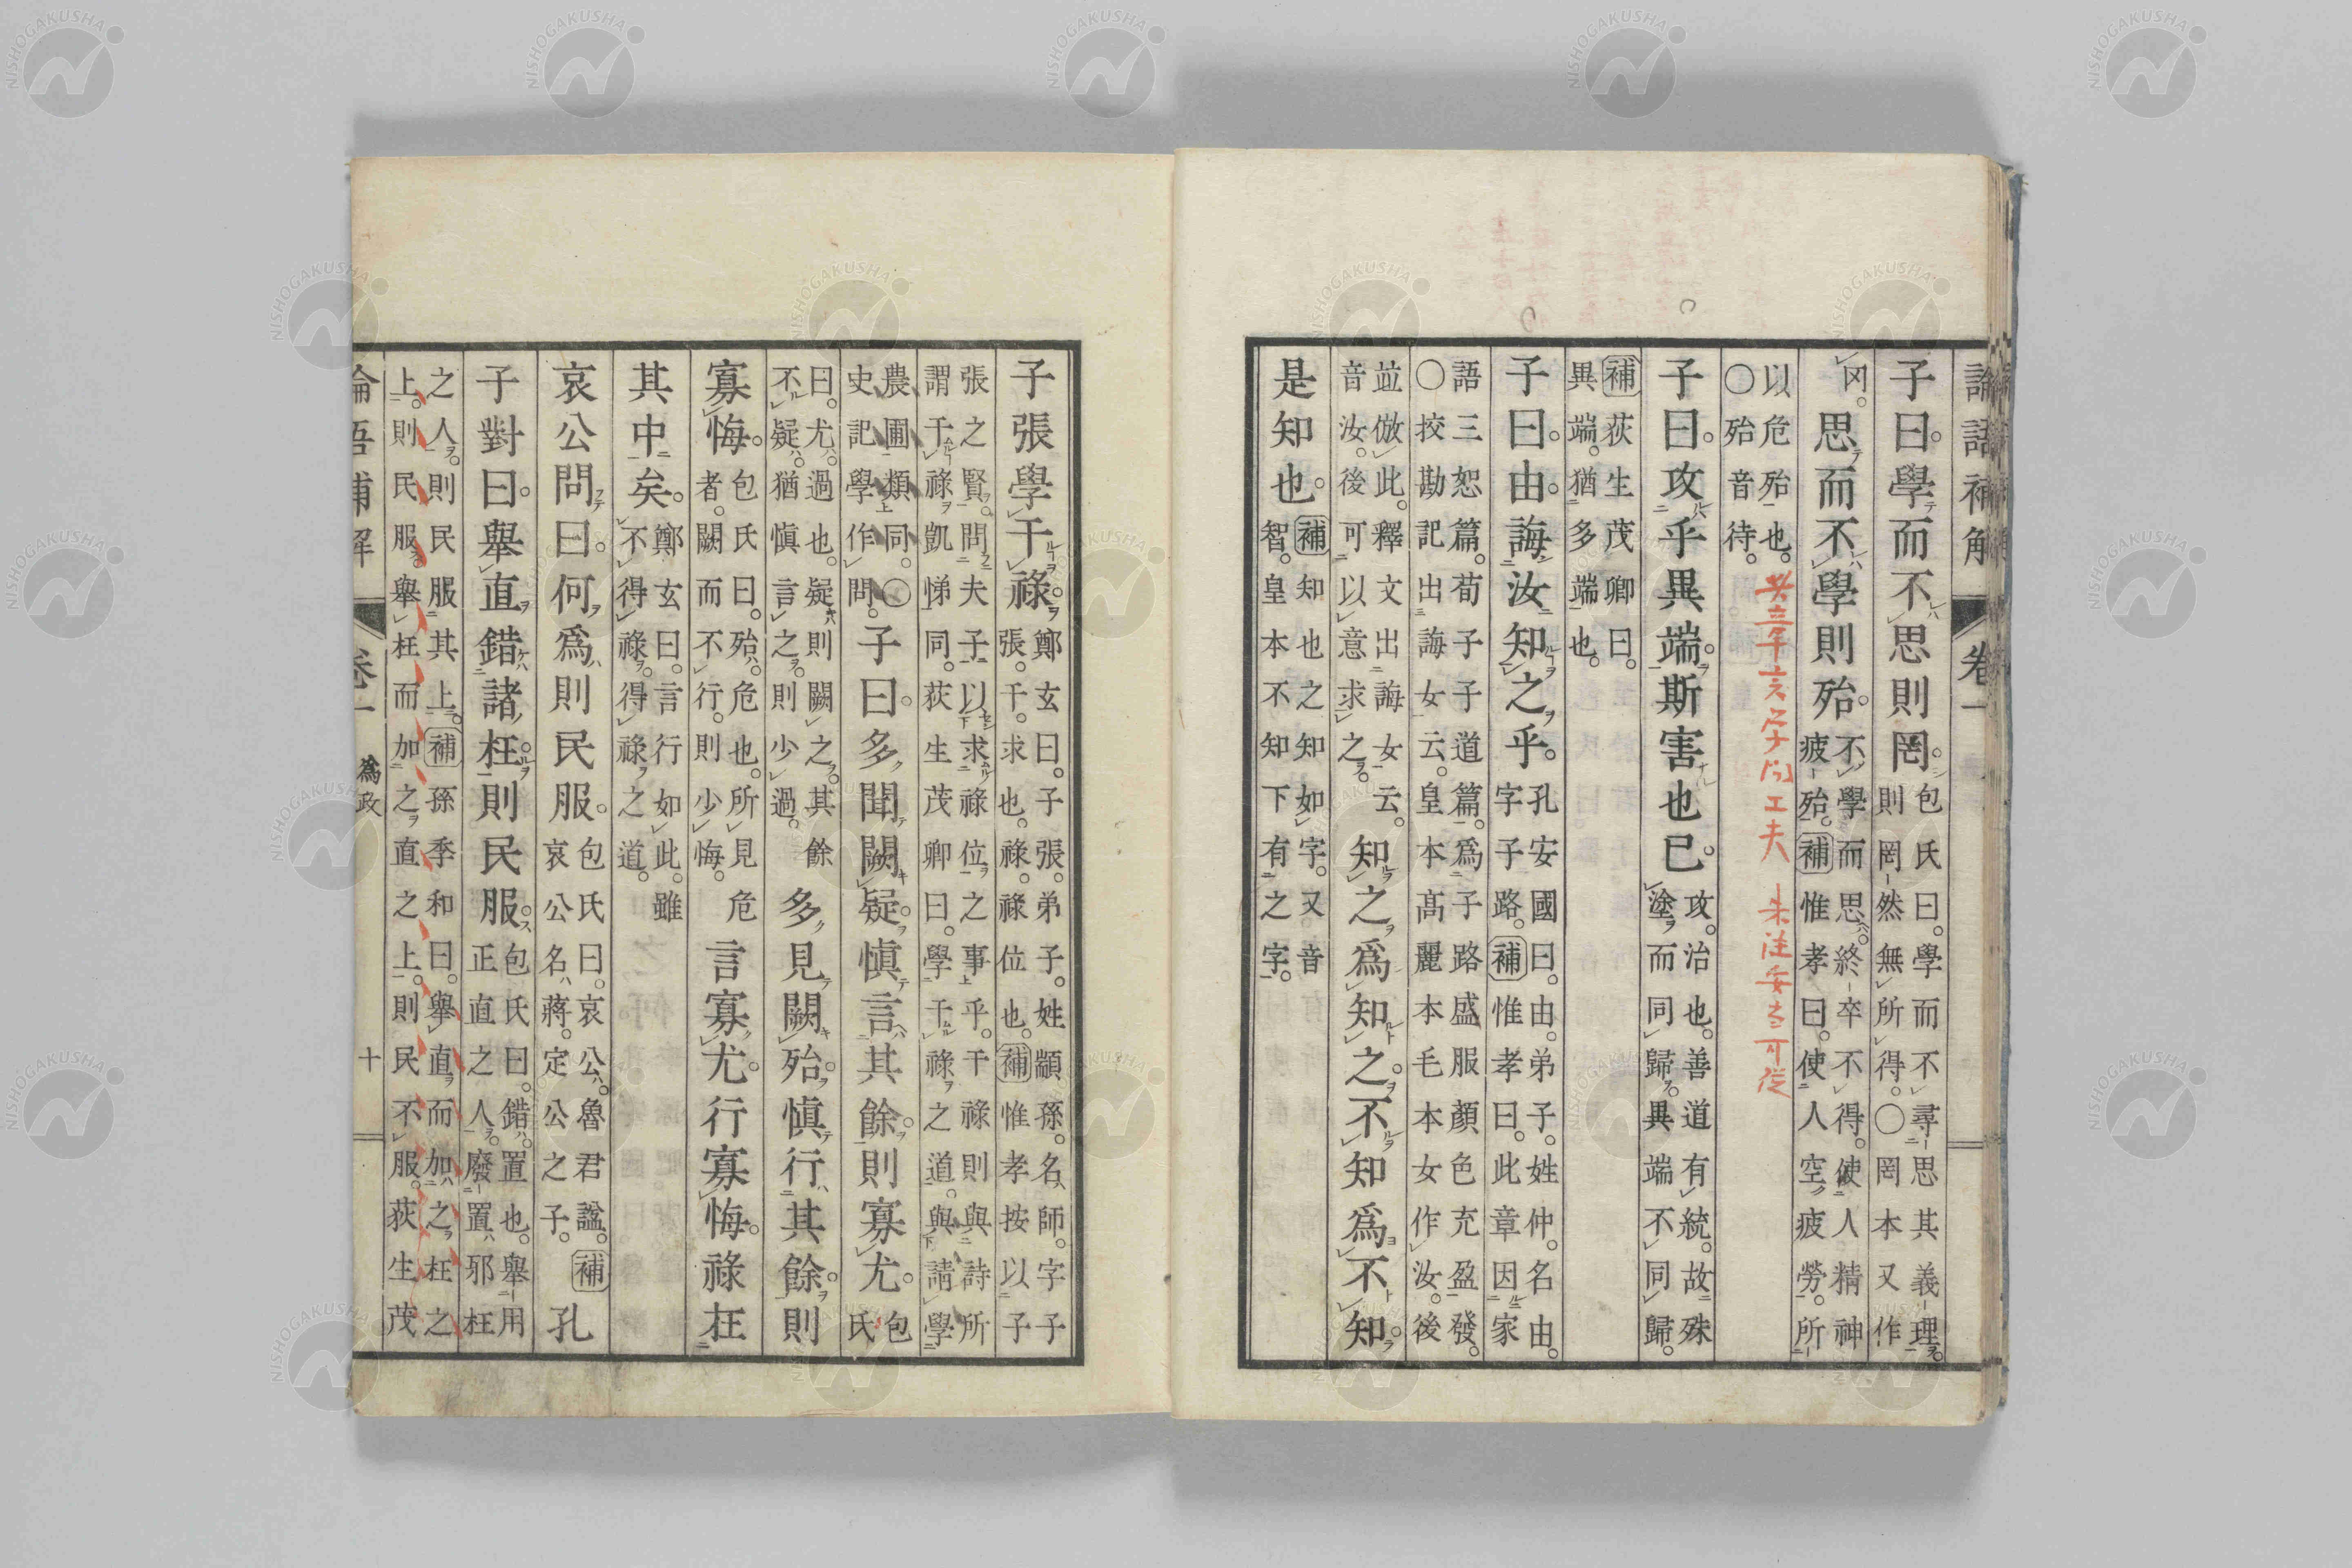 論語補解 卷一
子曰。學而不思則罔。包氏曰。學而不尋思其義理。則罔然無所得。〇罔本又作
冈。思而不學則殆。不學而思。終卒不得。使人精神疲殆。補惟孝曰。使人空疲勞。所
以危殆也。〇殆音待。
子曰。攻乎異端。斯害也已。攻。治也。善道有統。故殊塗而同歸。異端不同歸。
補荻生茂卿曰。異端。猶多端也。
子曰。由。誨汝知之乎。孔安國曰。由。弟子。姓仲。名由。字子路。補惟孝曰。此章因家
語三恕篇。荀子子道篇。爲子路盛服顏色充盈發。〇挍勘記出誨女云。皇本高麗本毛本女作汝。後
並倣此。釋文出誨女云。音汝。後可以意求之。知之爲知之。不知爲不知。
是知也。補知也之知如字。又音智。皇本不知下有之字。
子張學干祿。鄭玄曰。子張。弟子。姓顓孫。名師。字子張。干。求也。祿。祿位也。補惟孝按以子
張之賢。問夫子以求祿位之事乎。干祿則與詩所謂干祿凱悌同。荻生茂卿曰。學干祿之道。與請學
農圃類同。〇史記學作問。子曰。多聞闕疑。慎言其餘。則寡尤。包氏
曰。尤。過也。疑則闕之。其餘不疑。猶慎言之。則少過。多見闕殆。慎行其餘。則
寡悔。包氏曰。殆。危也。所見危者。闕而不行。則少悔。言寡尤。行寡悔。祿在
其中矣。鄭玄曰。言行如此。雖不得祿。得祿之道。
哀公問曰。何爲則民服。包氏曰。哀公。魯君諡。哀公名蔣。定公之子。補孔
子對曰。舉直錯諸枉。則民服。包氏曰。錯。置也。舉用正直之人。廢置邪枉
之人。則民服其上。補孫季和曰。舉直而加之枉之上。則民服。舉枉而加之直之上。則民不服。荻生茂
論語補解 卷一 爲政 十